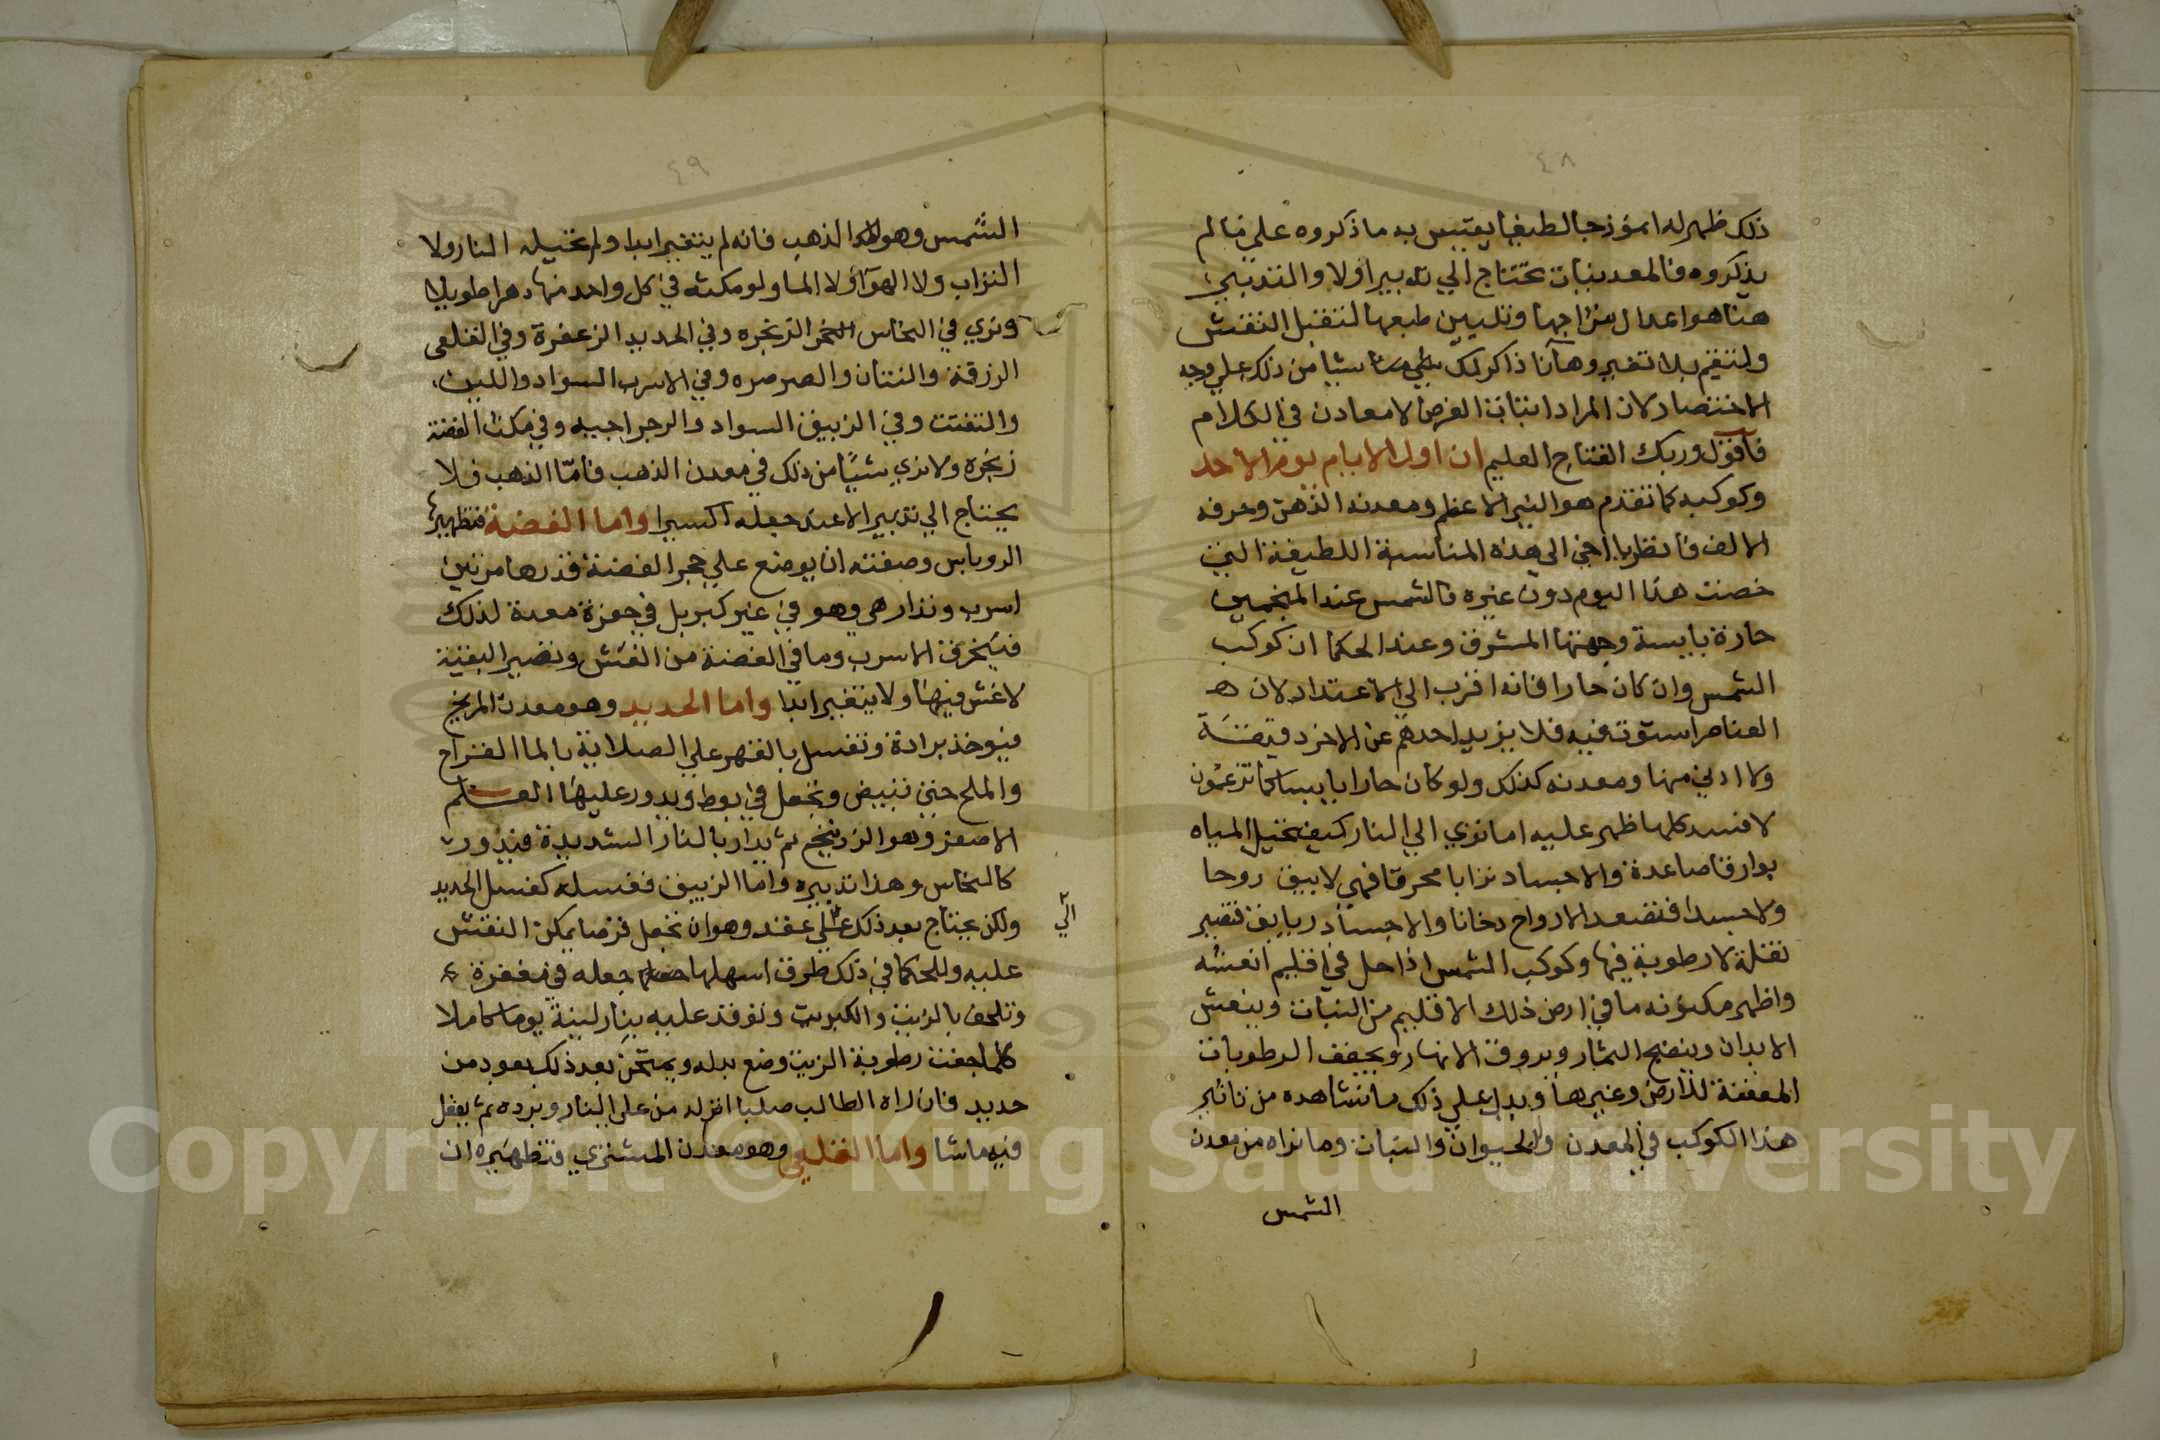 ٤٨
ذلك ظهر له انموذجا لطيفا يقتبس به ما ذكروه علي ما لم
يذكروه فالمعدنيات تحتاج الي تدبير اولا والتدبير
هنا هو اعدال مزاجها وتليين طبعها لتقبل النقش
ولتقم بلا تغير وها انا ذاكر لك شيا من ذلك علي وجه
الاختصار لان المراد اثبات الغرض لا معادن في الكلام
فاقول وربك الفتاح العليم ان اول الايام يوم الاحد
وكوكبه كما تقدم هو النير الاعظم ومعدنه الذهب وحرفه
الالف فانظر يا اخي الي هذه المناسبة اللطيفة التي
خصت هذا اليوم دون غيره فالشمس عند المنجمين
حارة يابسة وجهتها المشرق وعند الحكما ان كوكب
الشمس وان كان حارا فانه اقرب الي الاعتداد لان
العناصر استوت فيه فلا يزيد احدهم عن الاخر دقيقة
ولا ادني منها ومعدنه كذلك ولو كان حارا يابسا كما تزعمون
لافسد كلما ظهر عليه اما تري الي النار كيف تحيل المياه
بوارقا صاعدة والاجساد ترابا محرقا فهي لا يبق روحا
ولا جسدا فتصعد الارواح دخانا والاجساد فتصير
ثقلة لا رطوبة فيها وكوكب الشمس اذا حل في اقليم انعشه
واظهر مكنونه ما في ارض ذلك الاقليم من النبات وينعش
الابدان وينضج الثمار ويروق الانهار ويجفف الرطوبات
المعفنة للارض وغيرها ويدل علي ذلك ما نشاهده من تاثير
هذا الكوكب في المعدن والحيوان والنبات وما نراه من معدن
الشمس
٤٩
الشمس وهو الذهب فانه لم يتغير ابدا ولم تحيله النار ولا
التراب ولا الهوآ ولا الما ولو مكث في كل واحد منها دهرا طويلا
وتري في النحاس الزنجره وفي الحديد الزعفرة وفي القلعي
الزرقة والنتان والصرصره وفي الاسرب السواد واللين
والتفتت وفي الزيبق السواد والرجراجيه وفي مكث الفضة
زنجره ولا تري شيأ من ذلك في معدن الذهب فامّا الذهب فلا
يحتاج الي تدبير الا عند جعله اكسيرا واما الفضة فتطهيرها
الروباس وصفته ان يوضع علي حجر الفضة قدرها مرتين
اسرب وتدار هي وهو في غير كبريل في حفرة معدة لذلك
فيحرق الاسرب وما في الفضة من الغش وتصير البقية
لا غش فيها ولا يتغير ابدا واما الحديد وهو معدن المريخ
فيوخذ برادة وتغسل بالفهر علي الصلاية بالما القراح
والملح حتي تبيض وتجعل في بوط ويدور عليها العلم
الاصفر وهو الزرنيخ ثم يدار بالنار الشديدة فيذور
كالنحاس وهذا تدبيره واما الزيبق فغسله كغسل الحديد
ولكن يحتاج بعد ذلك الي عقد وهو ان تجعل قرصا يمكن النقش
عليه وللحكما في ذلك طرق اسهلها جعله في مغفرة
وتلحف بالزيت والكبريت وتوقد عليه بنار لينة يوما كاملا
كلما جفت رطوبة الزيت وضع بدله ويمتحن بعد ذلك بعود من
حديد فان راه الطالب صلبا انزله من علي النار وبرده ثم يفعل
فيه ما شا واما القلعي وهو معدن المشتري فتطهيره ان
الي